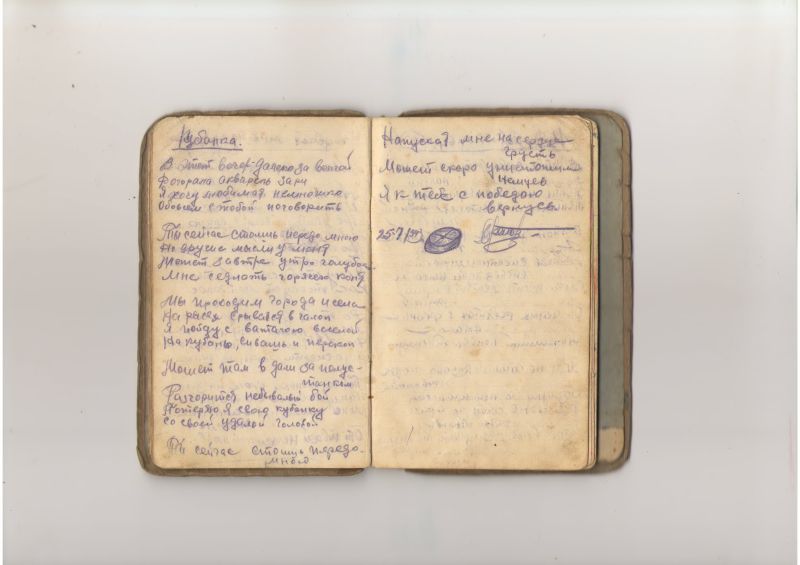 Кубанка.
В этот вечер далеко за Волгой
Догорала акварель зари
Я хочу любимая немножко
Обо всем с тобой поговорить
Ты сейчас стоишь передо мною
Но другие мысли у меня
Может завтра утро голубое
Мне седлать горячего коня
Мы проходим города и села
На рассв срываясь в галоп
Я пойду с ватагою веселой
На Кубань, Сиваш и Перекоп
Может там в дали за полус-
танком
Разгорится небывалый бой
Потеряю я свою кубанку
Со своей удалой головой
Ты сейчас стоишь передо
мною
Напускат мне на сердце
грусть
Может скоро уничтожим
Немцев
Я к тебе с победою
вернусь
25-7